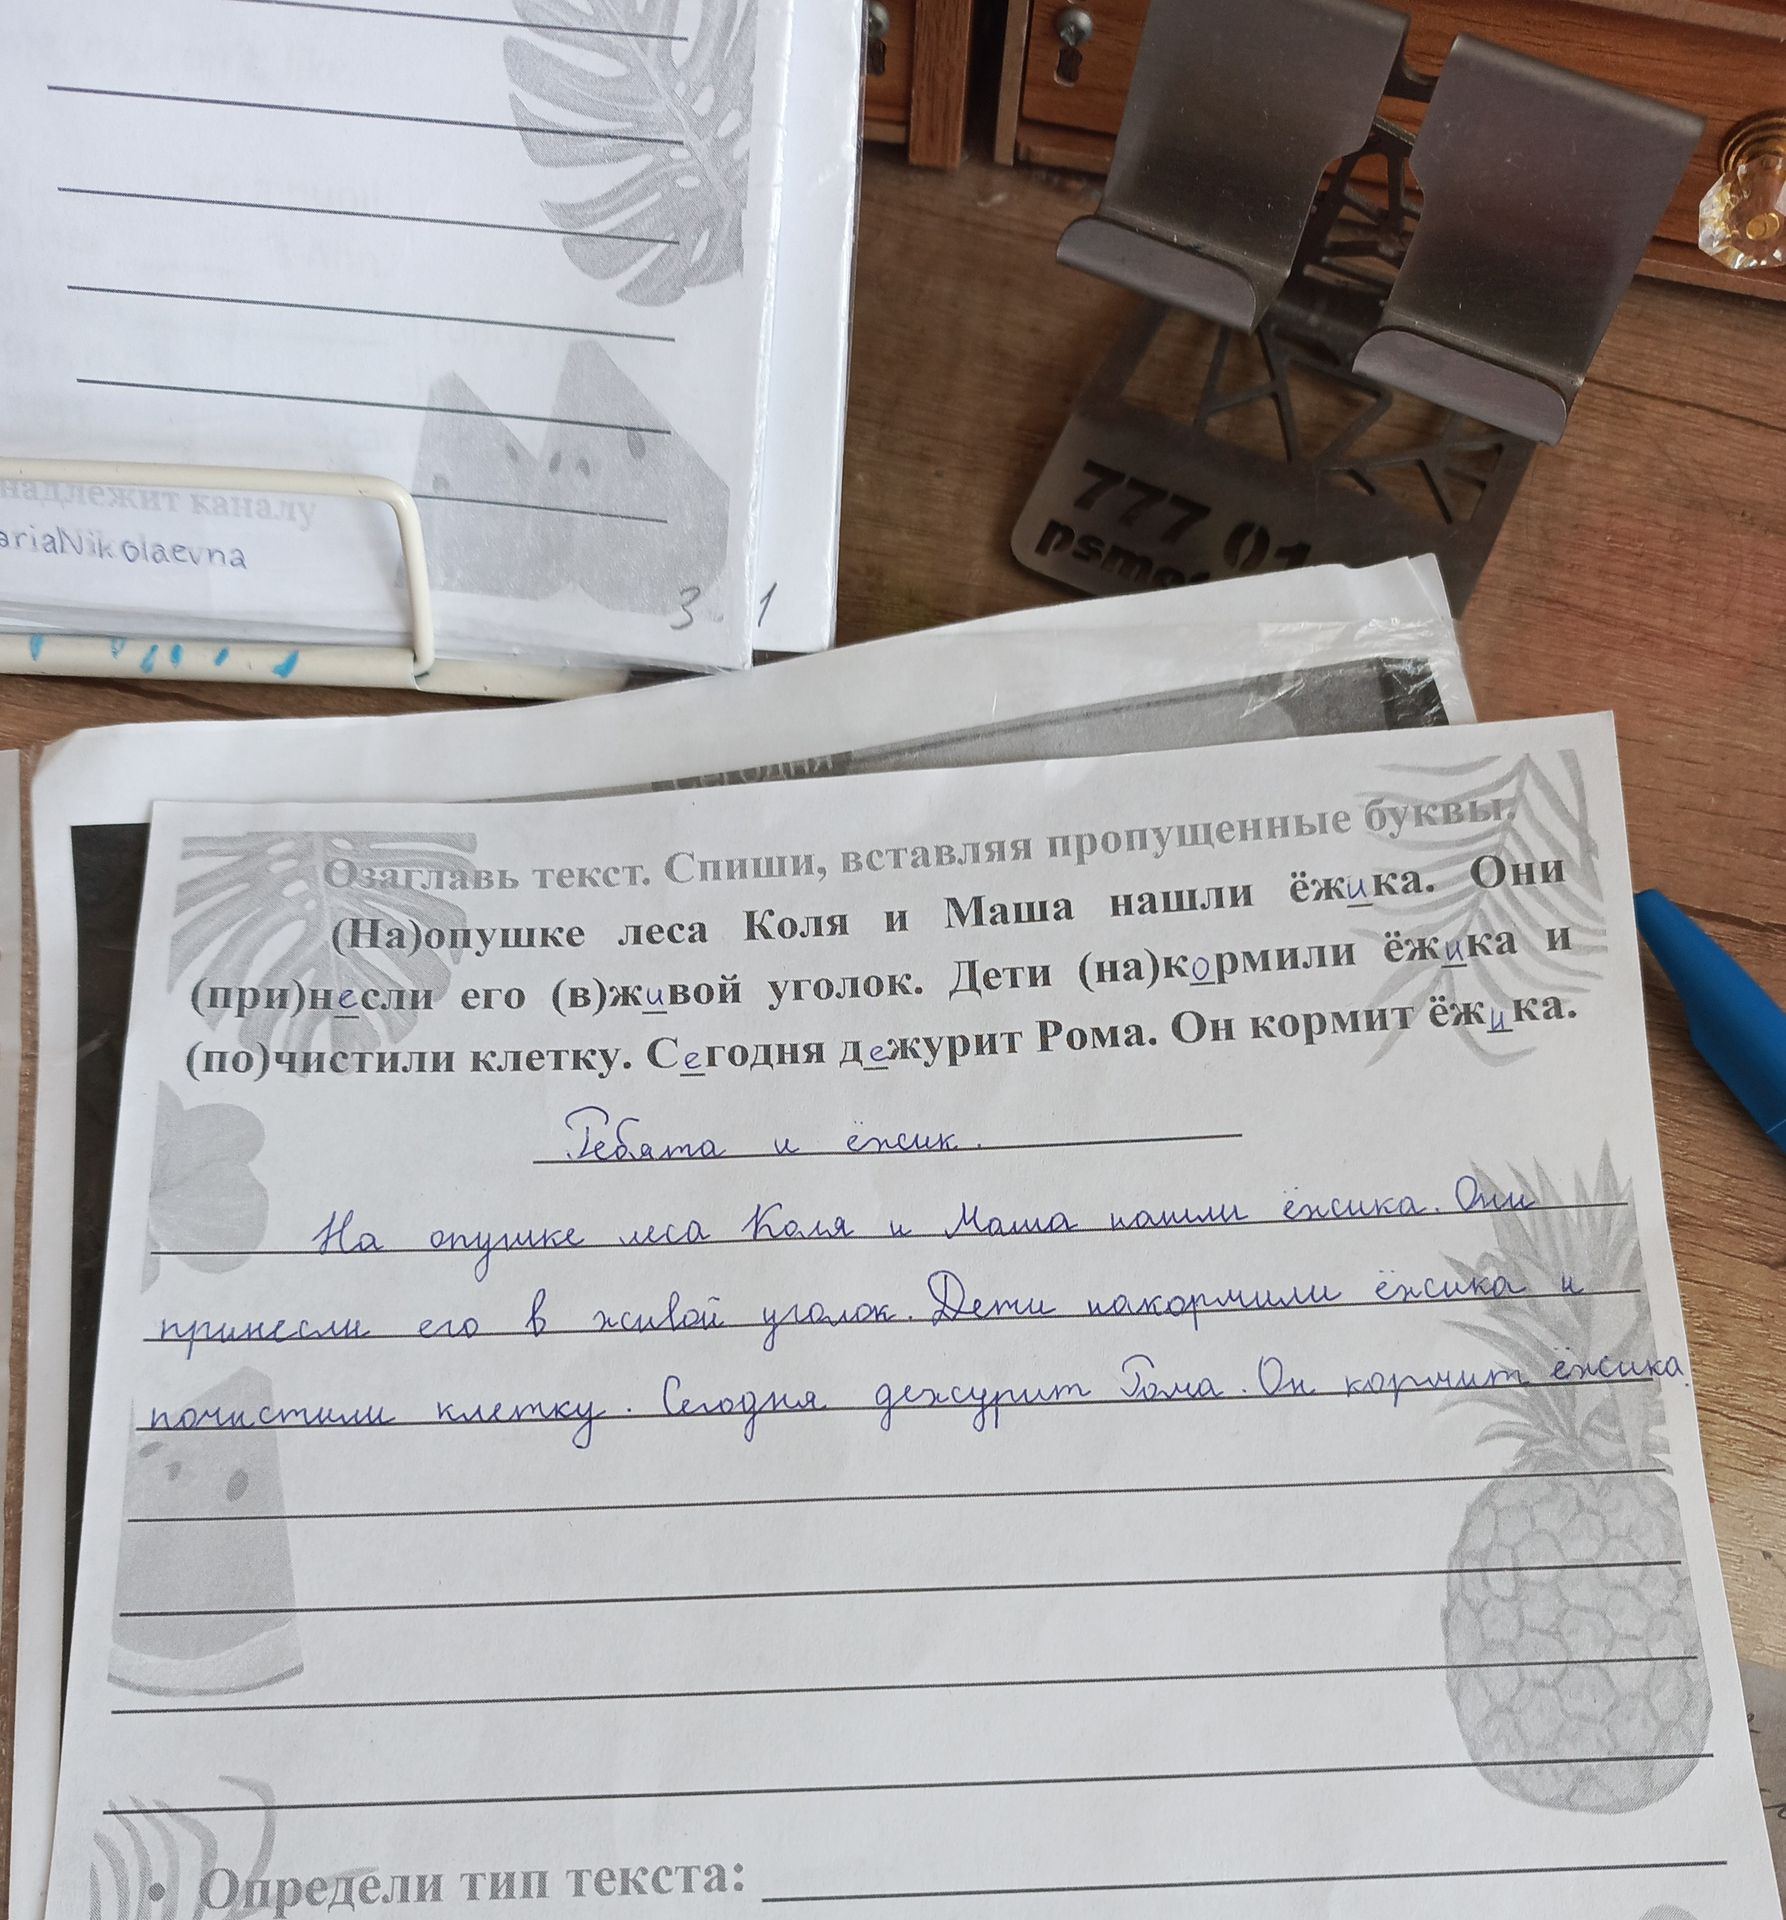 надлежит каналу
ariaNikolaevna
3
1
777 01
Сегодня
Озаглавь текст. Спиши, вставляя пропущенные буквы.
(На)опушке леса Коля и Маша нашли ёжика. Они
(при)несли его (в)живой уголок. Дети (на)кормили ёжика и
(по)чистили клетку. Сегодня дежурит Рома. Он кормит ёжика.
Ребята и ёжик.
На опушке леса Коля и Маша нашли ёжика. Они
принесли его в живой уголок. Дети накормили ёжика и
почистили клетку. Сегодня дежурит Рома. Он кормит ёжика.
• Определи тип текста: